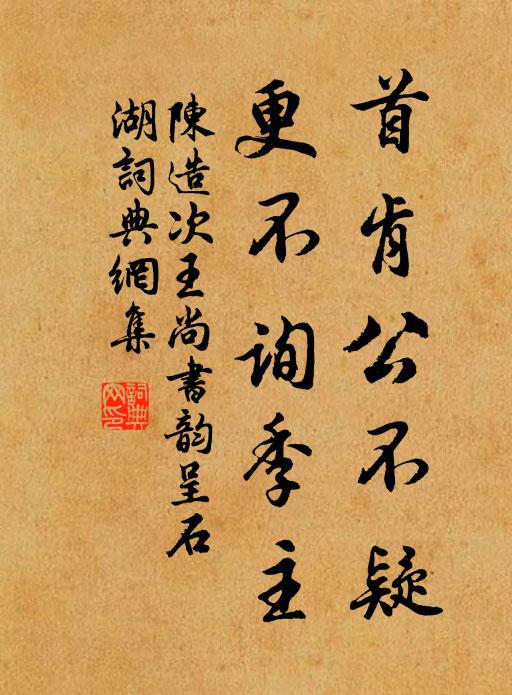 首肯公不疑
更不詢季主
陳造次王尚書韵呈石
湖詞典網集
詞典
网印